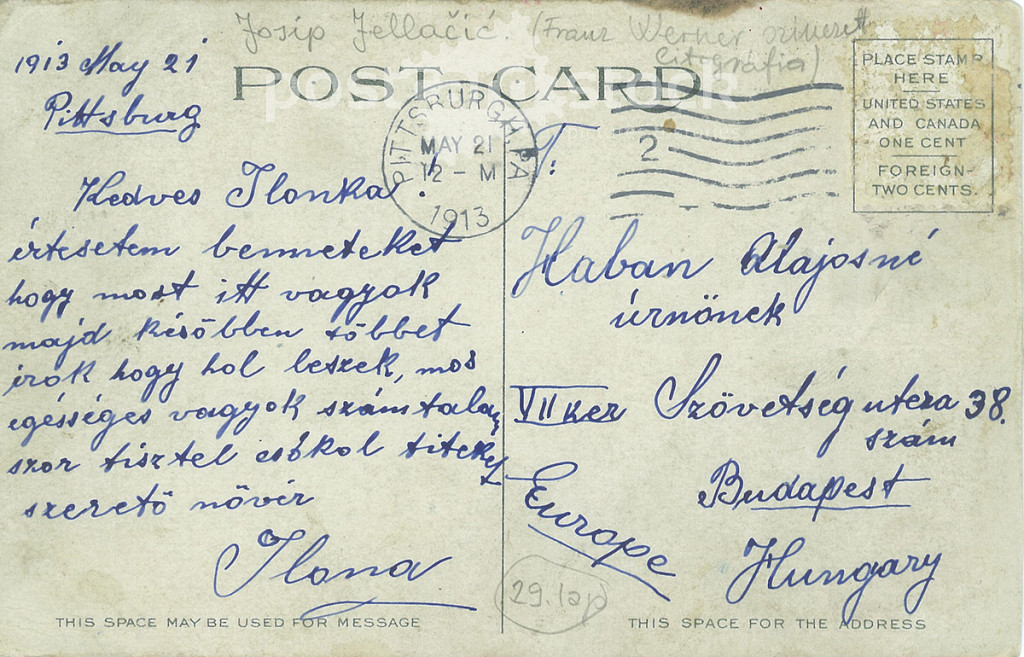 Josip Jellačić. (Franz Werner színezett
litográfia)
1913 May 21
Pittsburg
POST CARD
PITTSBURGH, PA
MAY 21
12 - M
1913
2
PLACE STAMP
HERE
UNITED STATES
AND CANADA
ONE CENT
FOREIGN-
TWO CENTS.
Kedves Ilonka!
értesetem benneteket
hogy most itt vagyok
majd későbben többet
irok hogy hol leszek, mos
egésséges vagyok számtalan
szor tisztel csókol titeket
szerető nővér
Ilona
T:
Haban Alajosné
úrnőnek
VII ker Szövetség utcza 38.
szám
Budapest
Europe
Hungary
29. lap
THIS SPACE MAY BE USED FOR MESSAGE
THIS SPACE FOR THE ADDRESS